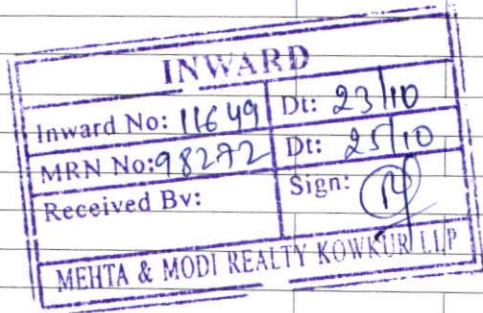 INWARD
Inward No: 11649 Dt: 23/10
MRN No: 98272 Dt: 25/10
Received By: Sign:
MEHTA & MODI REALTY KOWKUR LLP